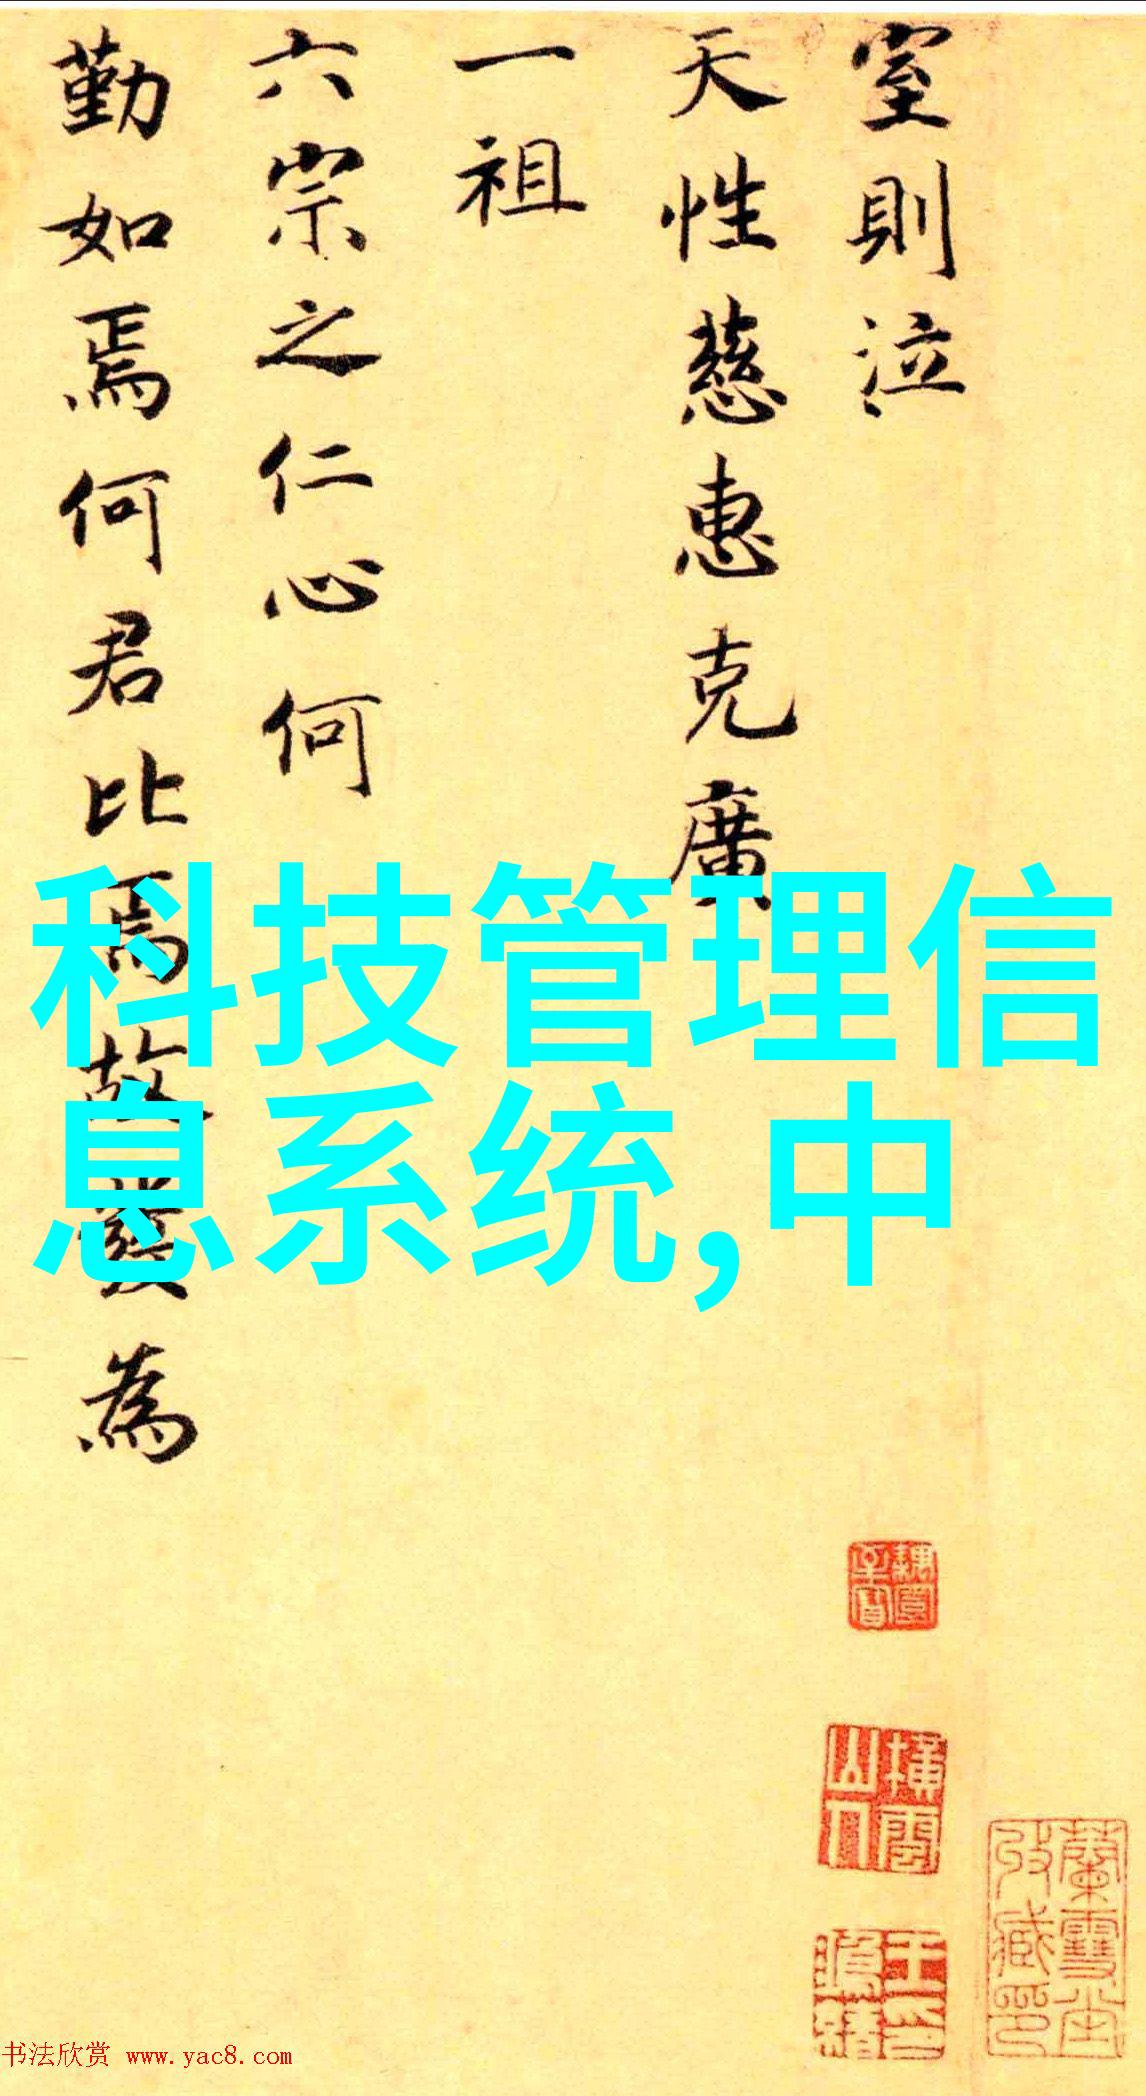 室則泣
天性慈惠克廣
一祖
六宗之仁心何
勤如焉何君比焉故發為
科技管理信
息系统,中
书法欣赏 www.yac8.com